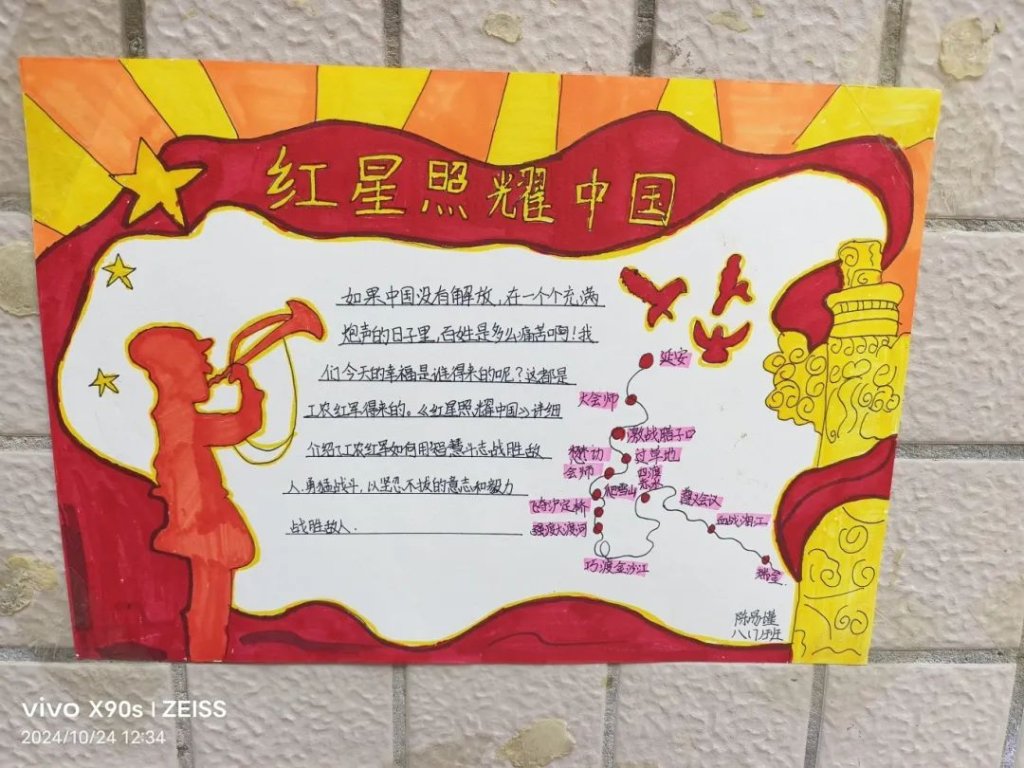 红星照耀中国
如果中国没有解放,在一个个充满
炮声的日子里,百姓是多么痛苦啊!我
们今天的幸福是谁得来的呢?这都是
工农红军得来的。《红星照耀中国》详细
介绍了工农红军如何用智慧斗志战胜敌
人.勇猛战斗,以坚忍不拔的意志和毅力
战胜敌人.
延安
大会师
激战腊子口
懋功
会师
过草地
爬雪山
四渡
赤水
遵义会议
飞夺泸定桥
血战湘江
强渡大渡河
巧渡金沙江
瑞金
vivo X90s | ZEISS
2024/10/24 12:34